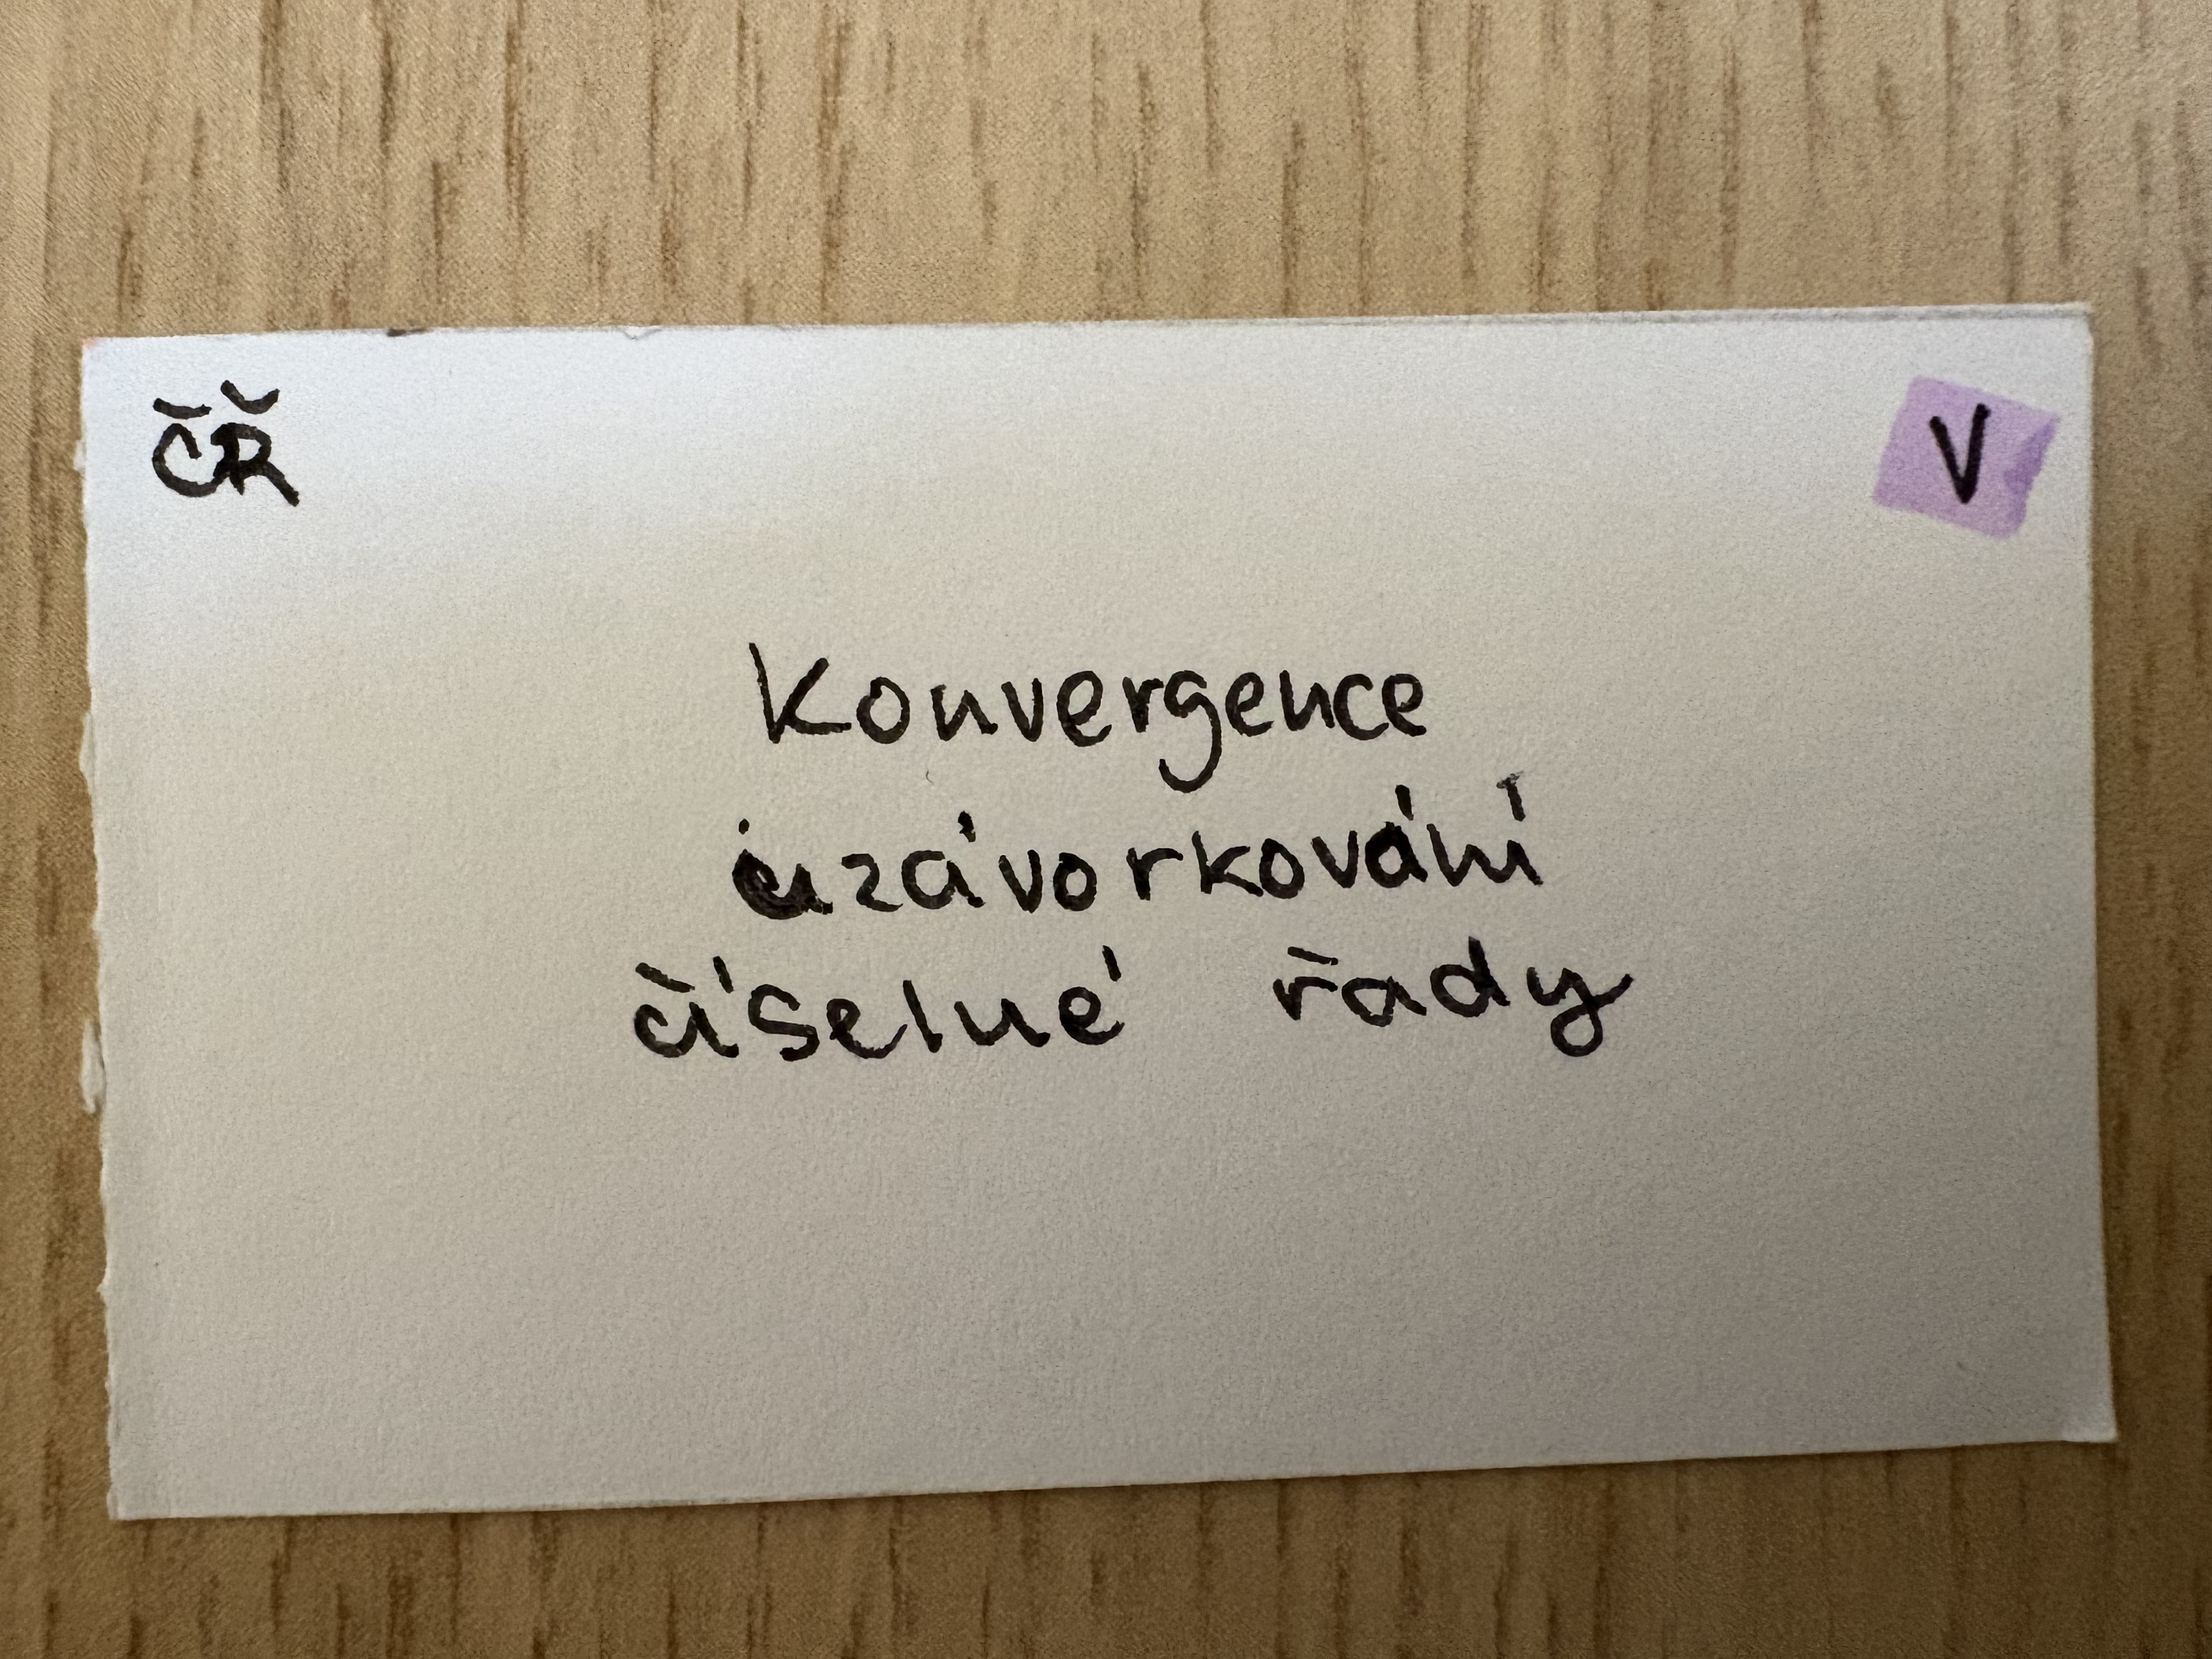 ČŘ
V
Konvergence
uzávorkování
číselné řady